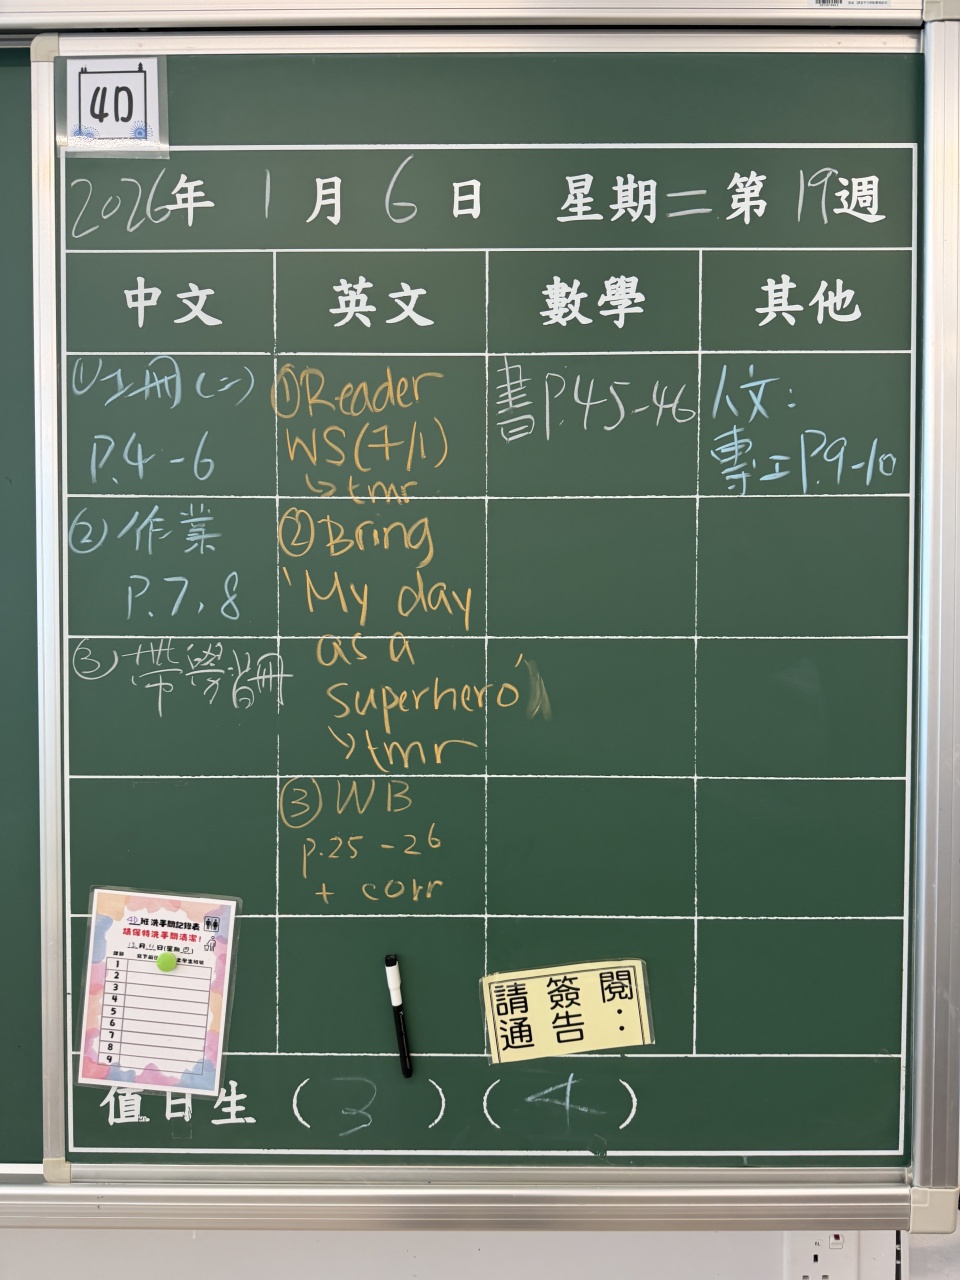 4D
2026年 1月 6日 星期二 第19週
中文
英文
數學
其他
①工冊(二)
P.4-6
②作業
P.7、8
③帶學習冊
①Reader
WS(7/1)
↳tmr
②Bring
'My day
as a
superhero'
↳tmr
③WB
p.25-26
+ corr
書P.45-46
人文:
專工P.9-10
4D班洗手間記錄表
請保持洗手間清潔!
1
2
3
4
5
6
7
8
9
請簽閱
通告:
值日生(3)(4)